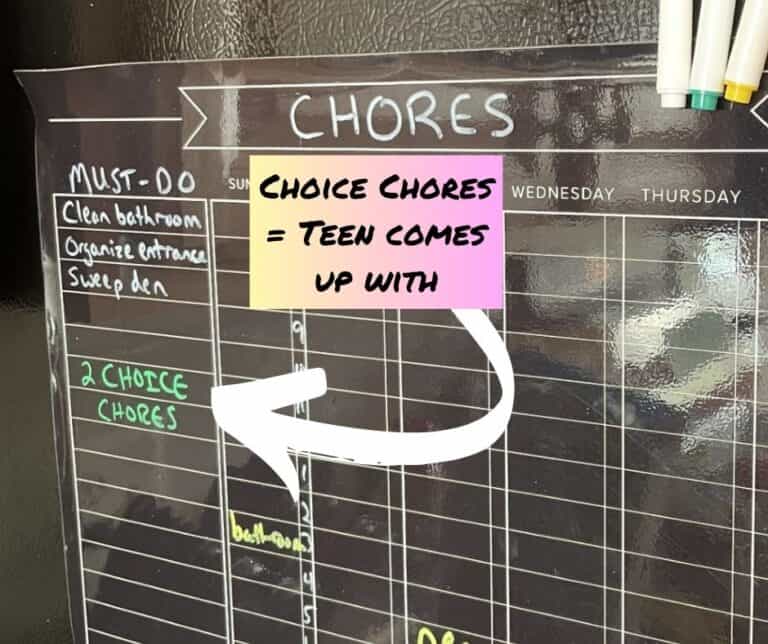 CHORES
MUST-DO
SUN
WEDNESDAY
THURSDAY
Choice Chores
= Teen comes
up with
Clean bathroom
Organize entrance
Sweep den
9
2 CHOICE
CHORES
1
2
bathroom
3
4
5